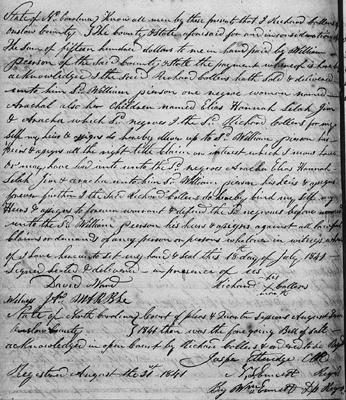 State of No Carolina Know all men by these presents that I Richard Collens
onslow County & the County & State aforesaid for and in consideration
The sum of fifteen hundred dollars to me in hand paid by William
person of the said County & State the payment whereof is hereby
acknowledged I the said Richard Collens hath sold & delivered
unto him Sd William pierson one negroe woman named
Arachal also her Children named Elias Hannah Selah Jim
& Aracha which Sd negroes I the Sd Richard Collens for my
self my heirs & assigns do hereby deliver up to Sd William pierson his
Heirs & assigns all the right title Claim or interest which I now have
or may have had unto the Sd negroes Aracha Elias Hannah
Selah Jim & unto him Sd William pierson his heirs & assigns
forever further I the said Richard Collens do hereby bind my self my
Heirs & assigns to forever warrant & defend the Sd negroes before
unto the Sd William Pierson his heirs & assigns against all lawful
Claims or demands of any person or persons whatever in witness whereof
I have hereunto set my hand & seal this 18 day of July 1841
Signed sealed & delivered in presence of
his
David Ward Richard X Collens
mark
Witness
State of North Carolina Court of pleas & Quarter Sessions August Term
onslow County 1841 then was the foregoing Bill of Sale
acknowledged in open Court by Richard Collens & ordered to be
Jasper Etheredge
Registered August the 31st 1841
By Wm Ennett